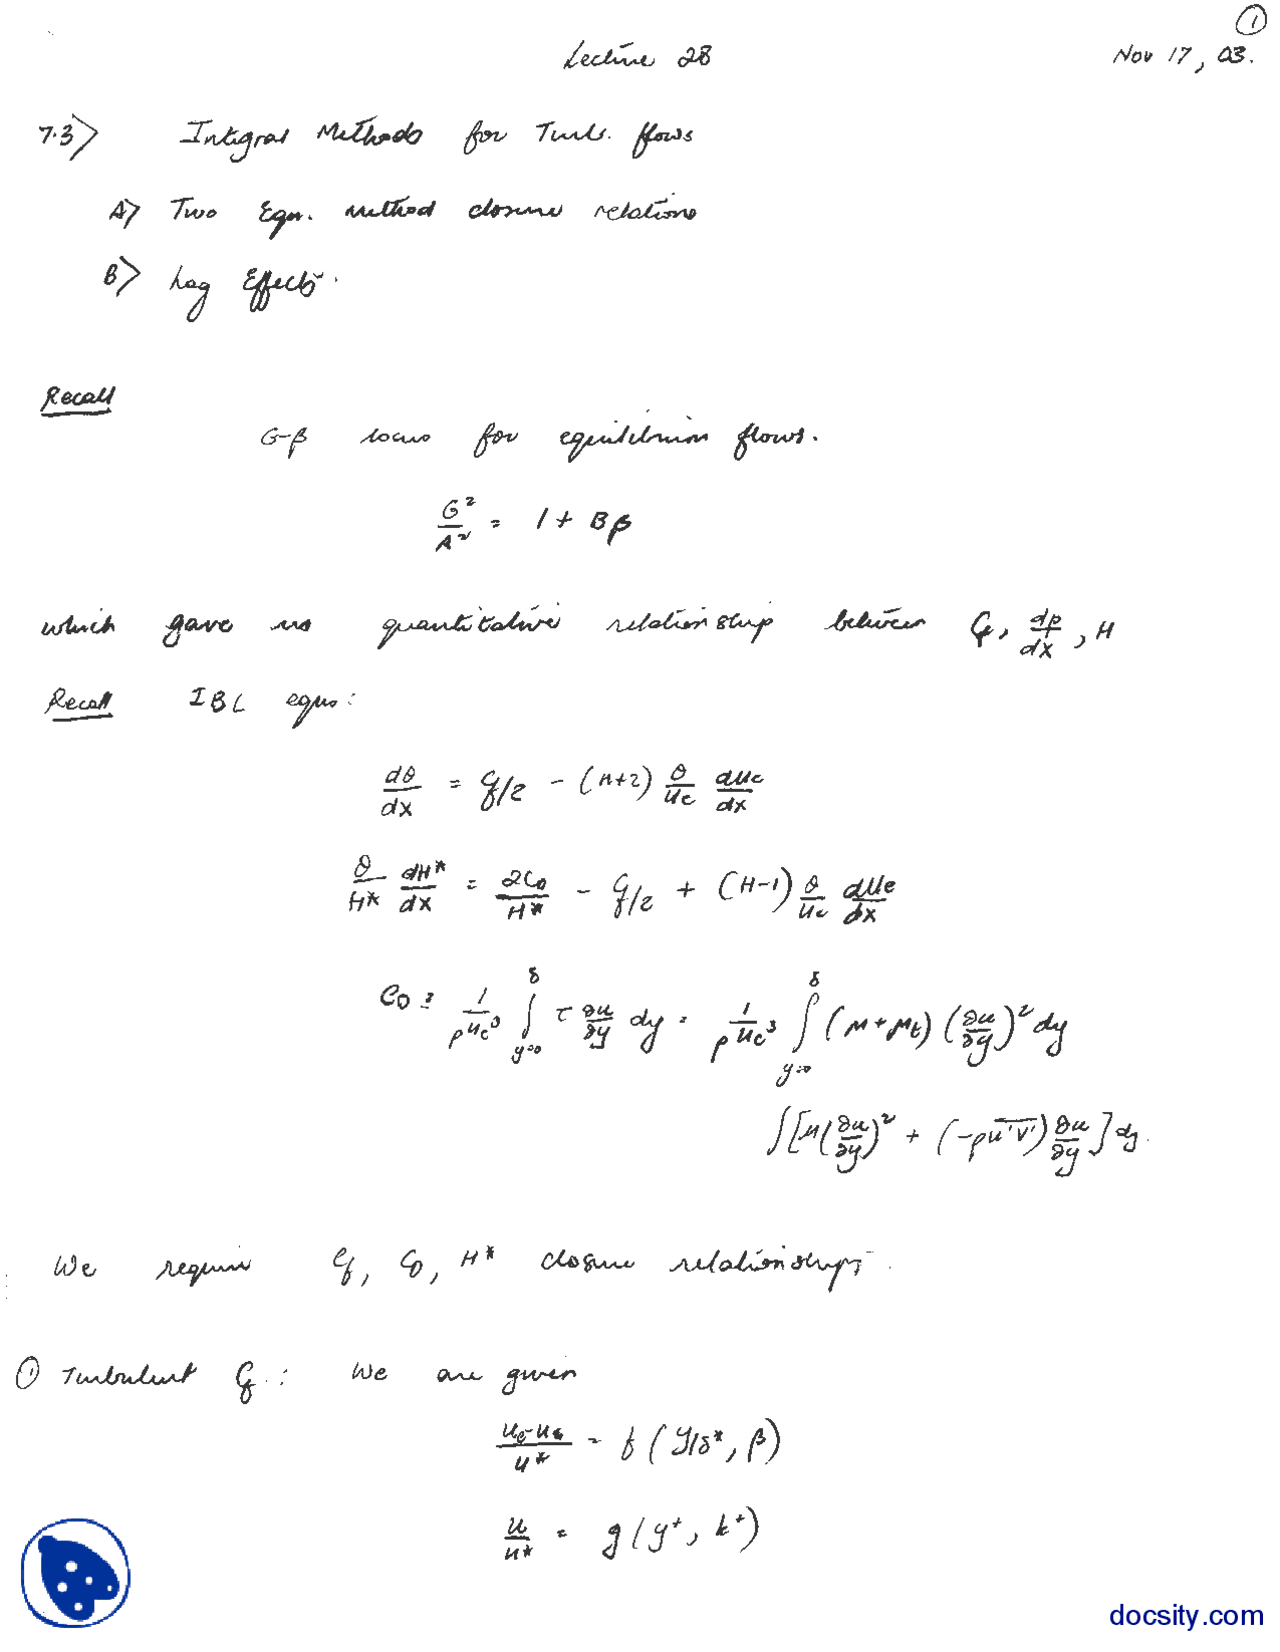 ①
Lecture 28
Nov 17, 03.
7.3> Integral Methods for Turb. flows
A> Two Eqn. Method closure relations
B> Lag Effects.
Recall
G-β locus for equilibrium flows.
G²/A² = 1 + Bβ
which gave us quantitative relationship between Cf, dp/dx, H
Recall IBL eqns:
dθ/dx = Cf/2 - (H+2) θ/ue due/dx
θ/H* dH*/dx = 2CD/H* - Cf/2 + (H-1) θ/ue due/dx
CD = 1/ρue³ ∫_{y=0}^{δ} τ ∂u/∂y dy = 1/ρue³ ∫_{y=0}^{δ} (μ+μt) (∂u/∂y)² dy
∫[μ(∂u/∂y)² + (-ρu'v') ∂u/∂y] dy.
We require Cf, CD, H* closure relationships.
① Turbulent Cf: We are given
= f (y/δ*, β)
u/u* = g(y⁺, k⁺)
docsity.com